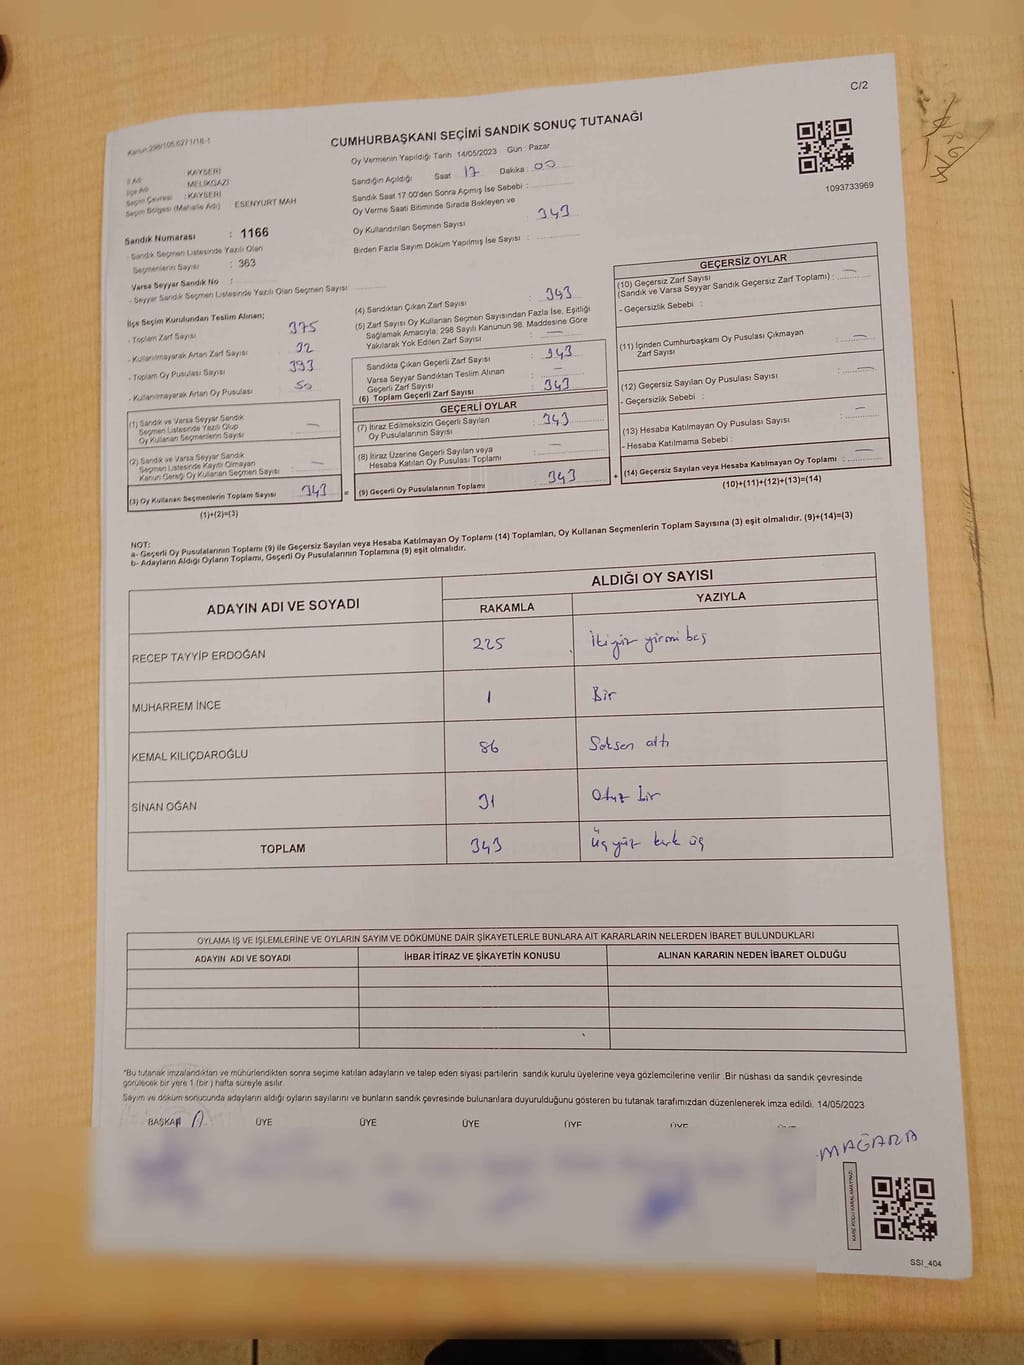 C/2
Kanun 298/105,6271/18-1
CUMHURBAŞKANI SEÇİMİ SANDIK SONUÇ TUTANAĞI
İl Adı : KAYSERİ
İlçe Adı : MELİKGAZİ
Seçim Çevresi : KAYSERİ
Seçim Bölgesi (Mahalle Adı) ESENYURT MAH
Oy Vermenin Yapıldığı Tarih 14/05/2023 Gün : Pazar
Sandığın Açıldığı Saat 17 Dakika : 00
Sandık Saat 17.00'den Sonra Açımış İse Sebebi :
Oy Verme Saati Bitiminde Sırada Bekleyen ve
Oy Kullandırılan Seçmen Sayısı 343
Birden Fazla Sayım Döküm Yapılmış İse Sayısı :
1093733969
Sandık Numarası : 1166
- Sandık Seçmen Listesinde Yazılı Olan
Seçmenlerin Sayısı : 363
Varsa Seyyar Sandık No :
- Seyyar Sandık Seçmen Listesinde Yazılı Olan Seçmen Sayısı :
İlçe Seçim Kurulundan Teslim Alınan;
- Toplam Zarf Sayısı 375
- Kullanılmayarak Artan Zarf Sayısı 32
- Toplam Oy Pusulası Sayısı 393
- Kullanılmayarak Artan Oy Pusulası 50
(1) Sandık ve Varsa Seyyar Sandık
Seçmen Listesinde Yazılı Olup
Oy Kullanan Seçmenlerin Sayısı : —
(2) Sandık ve Varsa Seyyar Sandık
Seçmen Listesinde Kayıtlı Olmayan
Kanun Gereği Oy Kullanan Seçmen Sayısı : —
(3) Oy Kullanan Seçmenlerin Toplam Sayısı 343 =
(1)+(2)=(3)
(4) Sandıktan Çıkan Zarf Sayısı : 343
(5) Zarf Sayısı Oy Kullanan Seçmen Sayısından Fazla İse, Eşitliği
Sağlamak Amacıyla; 298 Sayılı Kanunun 98. Maddesine Göre
Yakılarak Yok Edilen Zarf Sayısı : —
Sandıkta Çıkan Geçerli Zarf Sayısı : 343
Varsa Seyyar Sandıktan Teslim Alınan
Geçerli Zarf Sayısı : —
(6) Toplam Geçerli Zarf Sayısı : 343
GEÇERLİ OYLAR
(7) İtiraz Edilmeksizin Geçerli Sayılan
Oy Pusulalarının Sayısı : 343
(8) İtiraz Üzerine Geçerli Sayılan veya
Hesaba Katılan Oy Pusulası Toplamı : —
(9) Geçerli Oy Pusulalarının Toplamı : 343 +
GEÇERSİZ OYLAR
(10) Geçersiz Zarf Sayısı
(Sandık ve Varsa Seyyar Sandık Geçersiz Zarf Toplamı) : —
- Geçersizlik Sebebi :
(11) İçinden Cumhurbaşkanı Oy Pusulası Çıkmayan
Zarf Sayısı : —
(12) Geçersiz Sayılan Oy Pusulası Sayısı : —
- Geçersizlik Sebebi :
(13) Hesaba Katılmayan Oy Pusulası Sayısı : —
- Hesaba Katılmama Sebebi :
(14) Geçersiz Sayılan veya Hesaba Katılmayan Oy Toplamı : —
(10)+(11)+(12)+(13)=(14)
NOT:
a- Geçerli Oy Pusulalarının Toplamı (9) ile Geçersiz Sayılan veya Hesaba Katılmayan Oy Toplamı (14) Toplamları, Oy Kullanan Seçmenlerin Toplam Sayısına (3) eşit olmalıdır. (9)+(14)=(3)
b- Adayların Aldığı Oyların Toplamı, Geçerli Oy Pusulalarının Toplamına (9) eşit olmalıdır.
ADAYIN ADI VE SOYADI
ALDIĞI OY SAYISI
RAKAMLA YAZIYLA
RECEP TAYYİP ERDOĞAN 225 İkiyüz yirmi beş
MUHARREM İNCE 1 Bir
KEMAL KILIÇDAROĞLU 86 Seksen altı
SİNAN OĞAN 31 Otuz bir
TOPLAM 343 Üç yüz kırk üç
OYLAMA İŞ VE İŞLEMLERİNE VE OYLARIN SAYIM VE DÖKÜMÜNE DAİR ŞİKAYETLERLE BUNLARA AİT KARARLARIN NELERDEN İBARET BULUNDUKLARI
ADAYIN ADI VE SOYADI İHBAR İTİRAZ VE ŞİKAYETİN KONUSU ALINAN KARARIN NEDEN İBARET OLDUĞU
*Bu tutanak imzalandıktan ve mühürlendikten sonra seçime katılan adayların ve talep eden siyasi partilerin sandık kurulu üyelerine veya gözlemcilerine verilir .Bir nüshası da sandık çevresinde
görülecek bir yere 1 (bir ) hafta süreyle asılır.
Sayım ve döküm sonucunda adayların aldığı oyların sayılarını ve bunların sandık çevresinde bulunanlara duyurulduğunu gösteren bu tutanak tarafımızdan düzenlenerek imza edildi. 14/05/2023
BAŞKAN ÜYE ÜYE ÜYE ÜYE ÜYE
MAĞARA
SSI_404